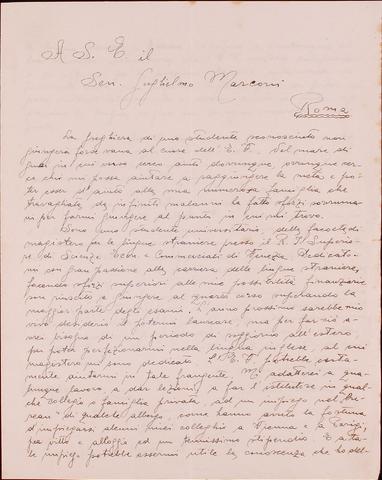 A S. E. il
Sen. Guglielmo Marconi
Roma
La preghiera di uno studente sconosciuto non
giungerà forse vana al cuore dell'E. V. Nel mare di
guai in cui verso cerco aiuti dovunque, ovunque cer-
co chi mi possa aiutare a raggiungere la meta e po-
ter esser d'aiuto alla mia numerosa famiglia che
travagliata da infiniti malanni ha fatto sforzi sovruma-
ni per farmi giungere al punto in cui mi trovo.
Sono uno studente universitario della facoltà di
magistero per le lingue straniere presso il R. I. Superio-
re di Scienze Econ. e Commerciali di Venezia. Dedicato-
mi con gran passione alla carriera delle lingue straniere,
facendo sforzi superiori alle mie possibilità finanziarie
son riuscito a giungere al quarto corso superando la
maggior parte degli esami. L'anno prossimo sarebbe mio
vivo desiderio il potermi laureare, ma per far ciò a-
vrei bisogno di un periodo di soggiorno all'estero,
per poter perfezionarmi nella lingua inglese al cui
magistero mi sono dedicato. L'E. V. potrebbe certa-
mente aiutarmi in tale frangente. Mi adatterei a qua-
lunque lavoro, a dar lezioni, a far l'istitutore in qual-
che collegio o famiglia privata, ad un impiego nel "Bu-
reau" di qualche albergo, come hanno avuto la fortuna
d'impiegarsi alcuni miei colleghi a Vienna e a Parigi,
per vitto e alloggio ed un tenuissimo stipendio. E a ta-
le impiego potrebbe essermi utile la conoscenza che ho del-